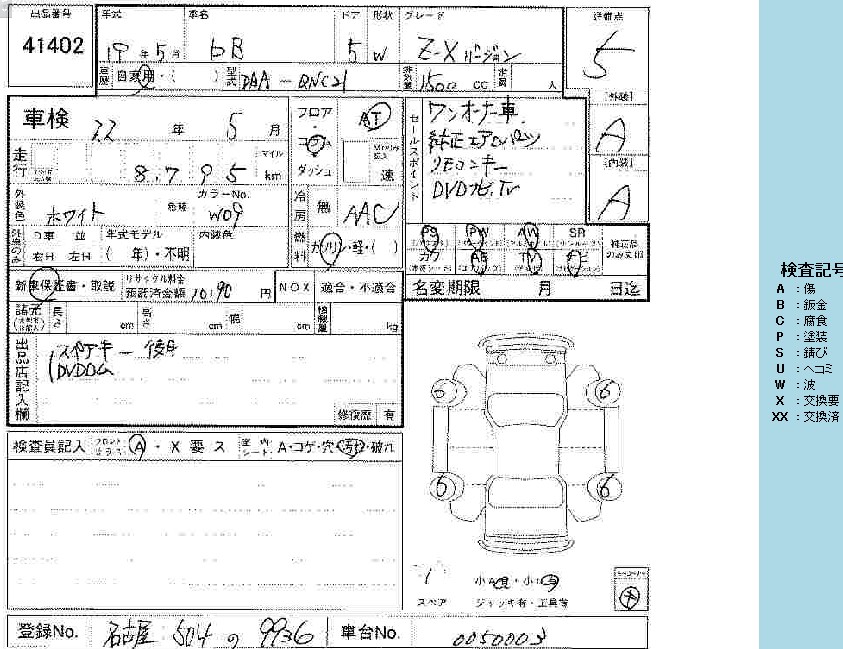 出品番号 年式 車名 ドア 形状 グレード 評価点
41402 19年5月 bB 5 W Z-X バージョン 5
車歴 自家用・( ) 型式 DAA-QNC21 排気量 1500 CC 定員 人
車検 22 年 5 月 フロア・コラム・ダッシュ AT 速
セールスポイント
ワンオーナー車
純正エアロパーツ
リモコンキー
DVDナビ、TV
[外装]
A
[内装]
A
走行 8.795 マイル km
外装色 ホワイト 色替 カラーNo. W09 冷房 無 AAC
外車のみ D車 並 年式モデル 内装色
右H 左H ( 年)・不明 燃料 ガソリン・軽・( )
PS PW AW SR
カワ AB TV ナビ
新車保証書・取説 リサイクル料金 預託済金額 10190 円 NOX 適合・不適合 名変期限 月 日迄
諸元 長さ cm 高さ cm 幅 cm 積載量 kg
出品店記入欄
スペアキー 後日
DVDロム
修復歴 有
検査員記入 フロントガラス A・X要ス 室内シート A・コゲ・穴・汚れ・破れ
6 6
6 6
スペア ジャッキ有・工具有
登録No. 名古屋 504 の 9936 車台No. 0050003
検査記号
A：傷
B：鈑金
C：腐食
P：塗装
S：錆び
U：ヘコミ
W：波
X：交換要
XX：交換済